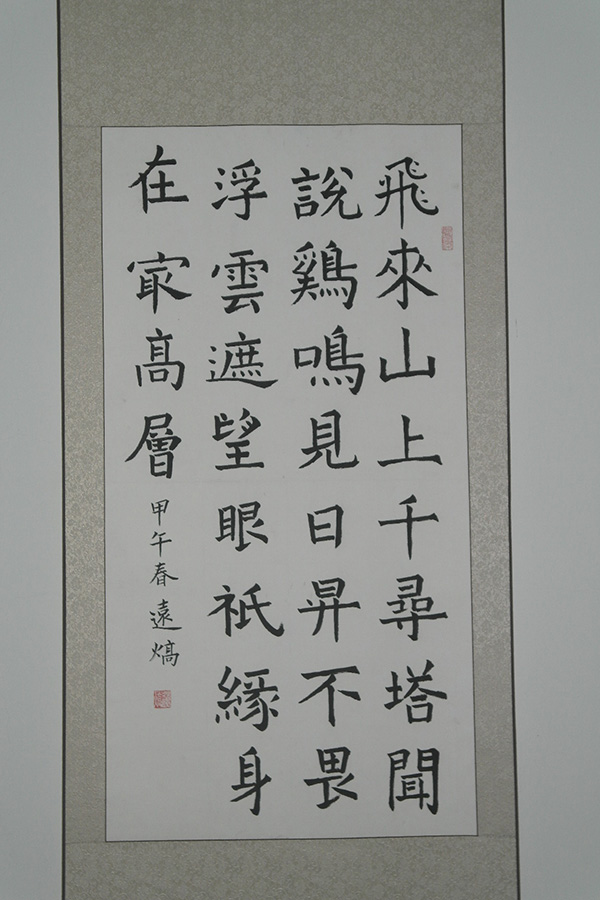 飛來山上千尋塔聞
說鷄鳴見日昇不畏
浮雲遮望眼祇緣身
在冣高層
甲午春遠熇